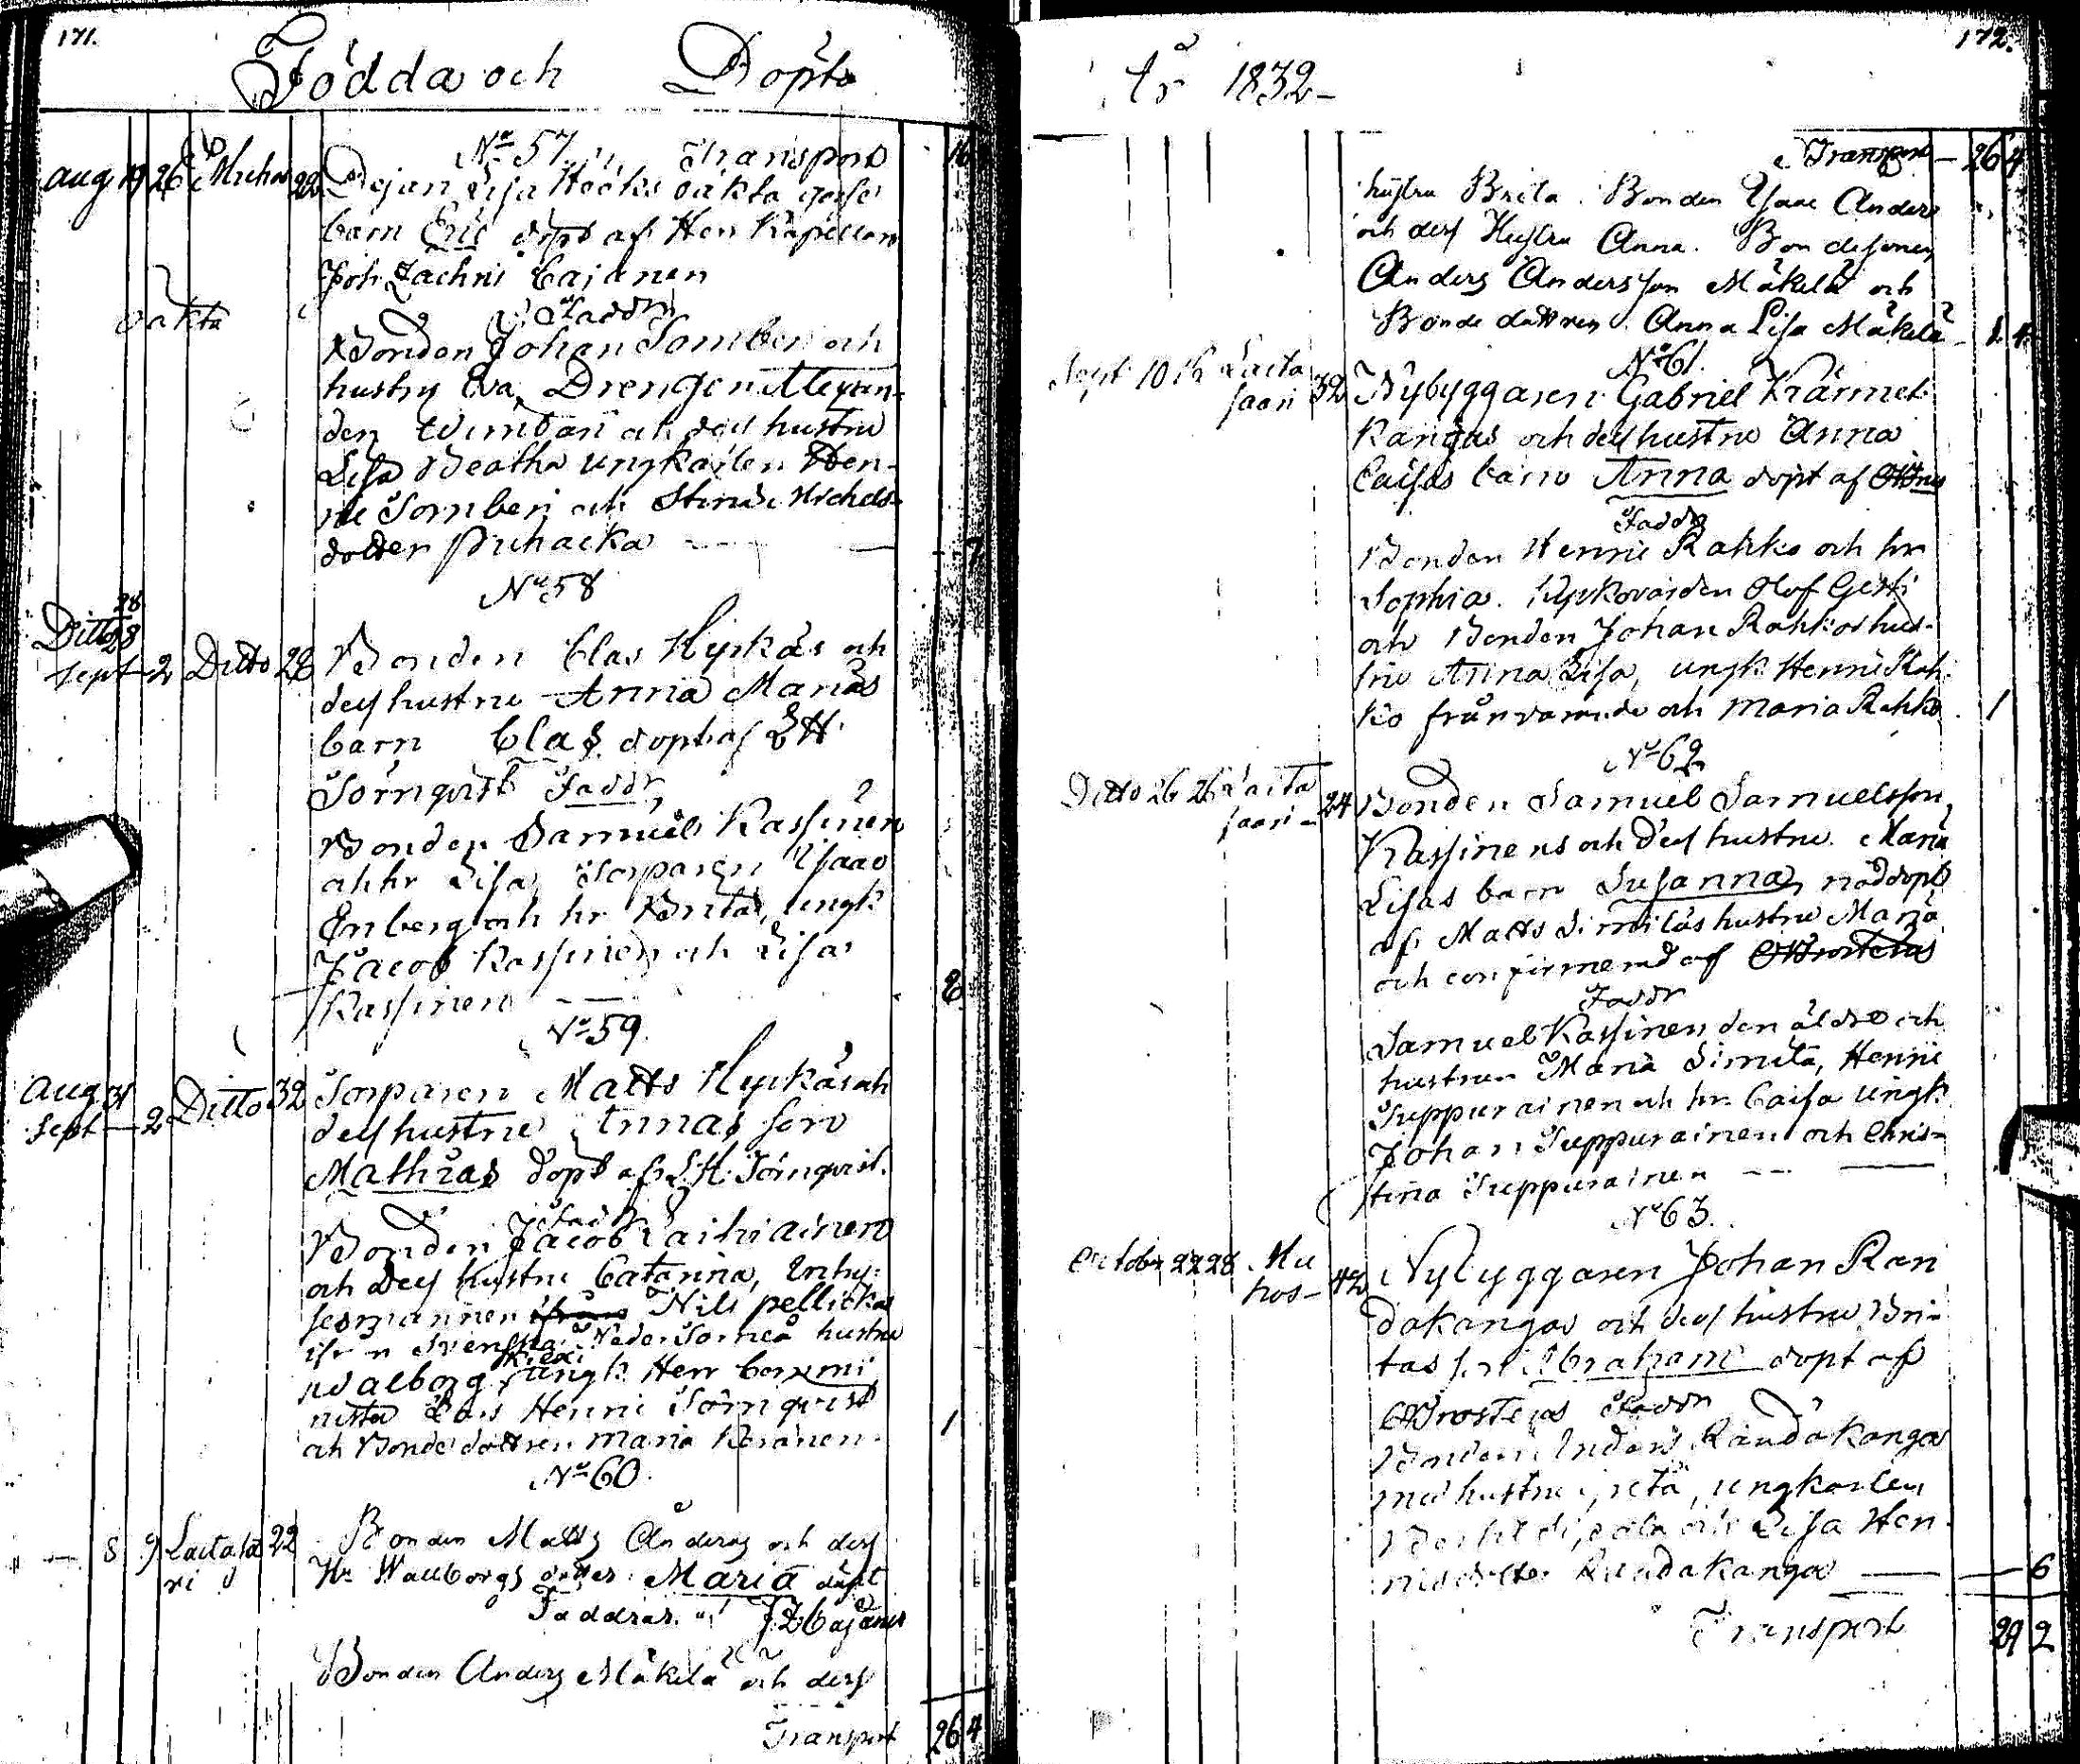 171.
Födda och Döpta
No 57. Transport 16
Aug 19 26 Muhos 22 Pigan Lisa Hööks oäkta gosse
barn Eric döpt af Herr Kapellan
Joh Zachris Cajanen
oäkta
Faddr
Bonden Johan Tornberi och
hustru Eva, Drengen Alexan-
der och des hustru
Lisa Beatha ungkarlen Hen-
rie Tornberi och Stina Michels
dotter Puhacka — 7
No 58
Ditto 28
28
Sept 2 Ditto 28 Bonden Clas Hyrkäs och
des hustru Anna Marias
barn Clas döpt af LH
Törnqvist Faddr
Bonden Samuel Kassinen
och hr Lisa, Torparen Isaac
Enberg och hr Brita, ungk
Jacob Kassinen och Lisa
Kassinen — 2
No 59.
Aug 31
Sept — 2 Ditto 32 Torparen Matts Hyrkäs och
des hustru Annas son
Mathias döpt af LH. Törnqvist.
Fadr
Bonden Jacob Laihiainen
och des hustru Catarina, Inhy-
sesmannen Nils pellicka
ifrån Svenska Neder Torneå hustru
Walborg ungk Herr Commi
nister Lars Henric Törnqvist 1
och Bonde dottren Maria Keränen.
No 60.
— 8 9 Laitasa 22 Bonden Matts Anders och des
ri Hr Wallborgs dotter Maria döpt
Faddrar. af JZ Cajanus
Bonden Anders Mäkelä och ders
Transport 26 4
172.
År 1832 —
Transport — 26 4
hustru Brita. Bonden Isaac Anders
och ders Hustru Anna. Bondesonen
Anders Andersson Mäkelä och
Bonde dottren Anna Lisa Mäkelä — 1. 4.
No 61.
Sept 10 16 Laita
saari 32 Nybyggaren Gabriel Kärmet
Kangas och des hustru Anna
Caisas barn Anna döpt af
Faddr
Bonden Henric Rahko och hr
Sophia. Kyrkovärden Olof Gästi
och Bonden Johan Rahkos hus-
tru Anna Lisa, ungk Henric Rah-
ko frånvarande och Maria Rahko 1
No 62
Ditto 26 26 Laita
saari — 24 Bonden Samuel Samuelsson
Kassinens och des hustru Maria
Lisas barn Susanna, nöddöpt
af Matts Similäs hustru Maria
och confirmerad af
Faddr
Samuel Kassinen den äldre och
hustrun Maria Simila, Henric
Tuppurainen och hr Caisa ungk
Johan Tuppurainen och Chris-
tina Tuppurainen —
No 63.
October 22 28 Mu
hos — 42 Nybyggaren Johan Ran
dakangas och des hustru Bri-
tas son Abraham döpt af
Faddr
Bonden Anders Randakanga
med hustru Greta, ungkarlen
och Lisa Hen-
ricsdotter Randakanga — 6
Transport 29 2